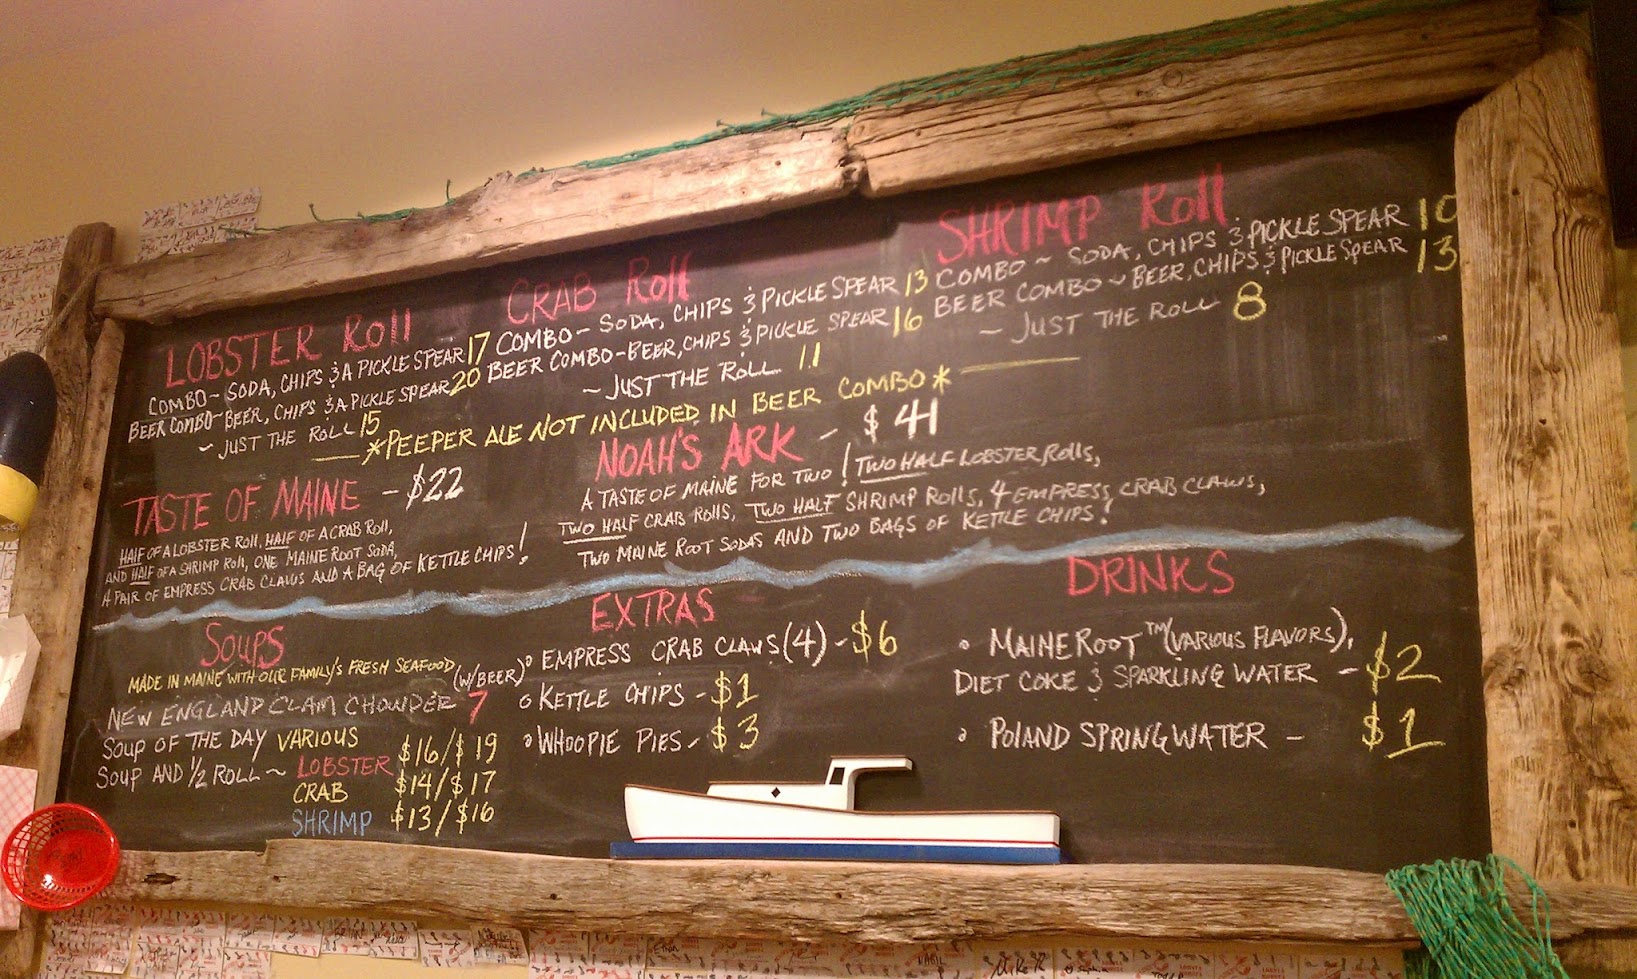 LOBSTER Roll
COMBO~ SODA, CHIPS & A PICKLE SPEAR 17
BEER COMBO~BEER, CHIPS & A PICKLE SPEAR 20
~ JUST THE ROLL 15
CRAB Roll
COMBO~ SODA, CHIPS & PICKLE SPEAR 13
BEER COMBO-BEER, CHIPS & PICKLE SPEAR 16
~JUST THE ROLL 11
SHRIMP Roll
COMBO ~ SODA, CHIPS & PICKLE SPEAR 10
BEER COMBO ~ BEER, CHIPS & PICKLE SPEAR 13
~ JUST THE ROLL 8
*PEEPER ALE NOT INCLUDED IN BEER COMBO*
TASTE OF MAINE - $22
HALF OF A LOBSTER ROLL, HALF OF A CRAB ROLL,
AND HALF OF A SHRIMP ROLL, ONE MAINE ROOT SODA,
A PAIR OF EMPRESS CRAB CLAWS AND A BAG OF KETTLE CHIPS!
NOAH'S ARK - $41
A TASTE OF MAINE FOR TWO! TWO HALF LOBSTER ROLLS,
TWO HALF CRAB ROLLS, TWO HALF SHRIMP ROLLS, 4 EMPRESS CRAB CLAWS,
TWO MAINE ROOT SODAS AND TWO BAGS OF KETTLE CHIPS!
SOUPS
MADE IN MAINE WITH OUR FAMILY'S FRESH SEAFOOD
(W/BEER)
NEW ENGLAND CLAM CHOWDER 7
SOUP OF THE DAY VARIOUS
SOUP AND 1/2 ROLL ~ LOBSTER $16/$19
CRAB $14/$17
SHRIMP $13/$16
EXTRAS
• EMPRESS CRAB CLAWS (4) - $6
• KETTLE CHIPS - $1
• WHOOPIE PIES - $3
DRINKS
• MAINE ROOT™ (VARIOUS FLAVORS),
DIET COKE & SPARKLING WATER - $2
• POLAND SPRING WATER - $1